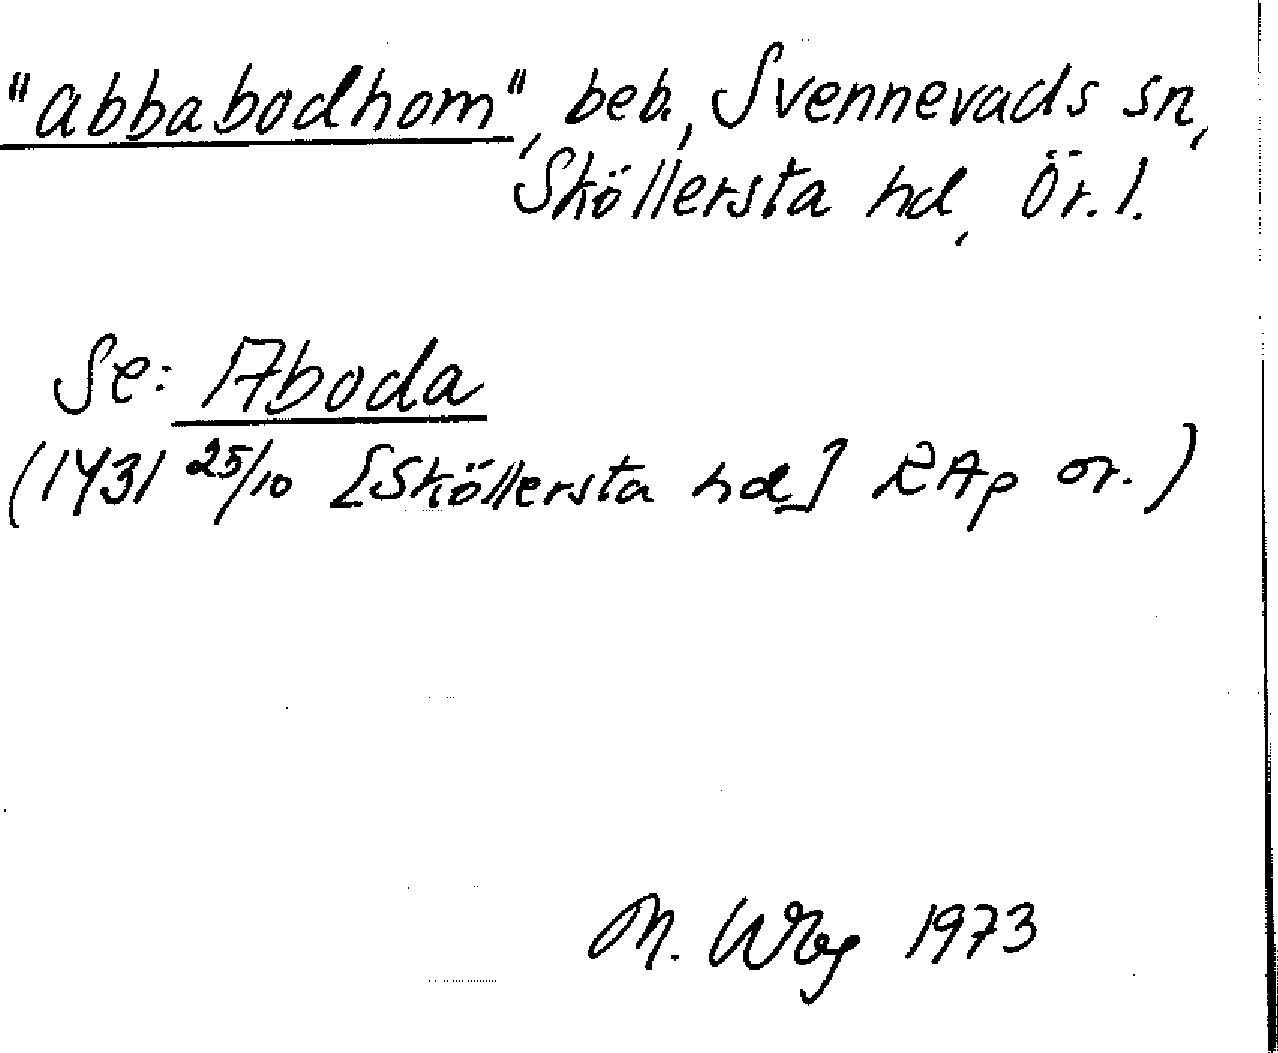 "abbabodhom", beb., Svennevads sn,
Sköllersta hd, Ör. l.
Se: Aboda
(1431 25/10 [Sköllersta hd] RAp or.)
M. Wbg 1973